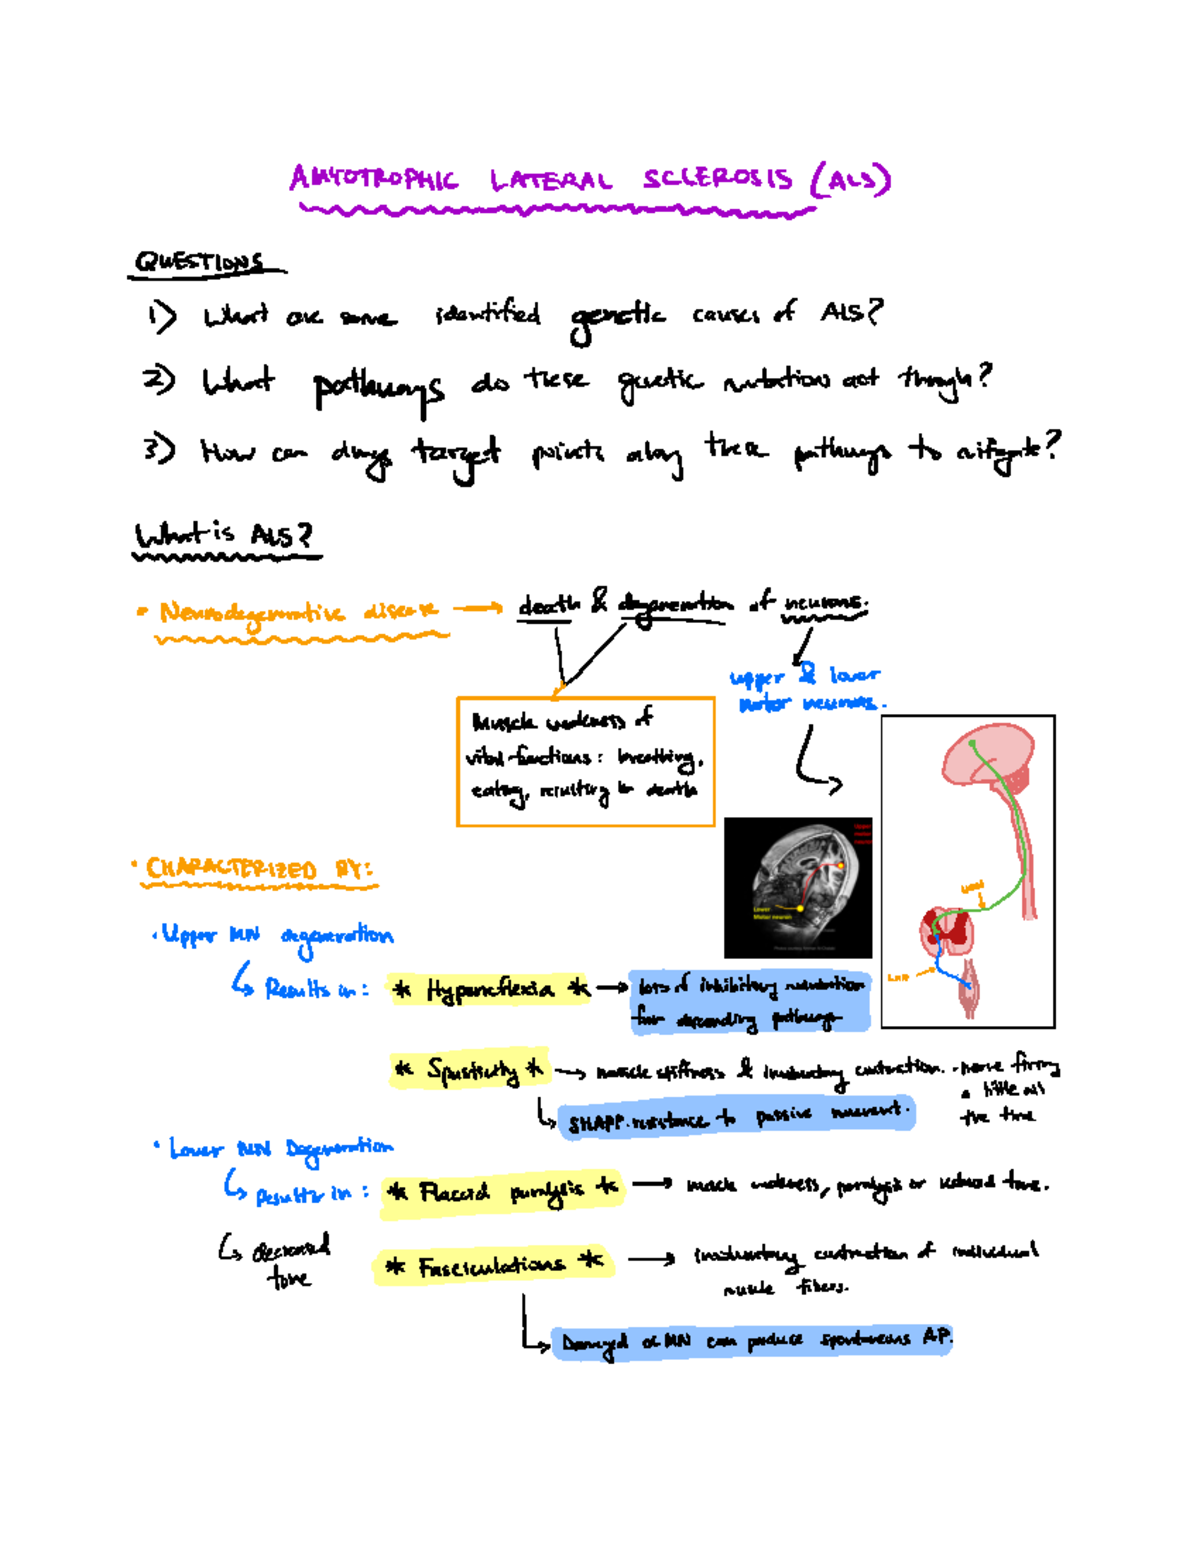 AMYOTROPHIC LATERAL SCLEROSIS (ALS)
QUESTIONS
1) What are some identified genetic causes of ALS?
2) What pathways do these genetic mutations act through?
3) How can drugs target points along these pathways to mitigate?
What is ALS?
• Neurodegenerative disease → death & degeneration of neurons.
upper & lower
motor neurons.
Muscle weakness of
vital functions: breathing,
eating, resulting in death
Upper
motor
neuron
Lower
Motor neuron
UMN
LMN
• CHARACTERIZED BY:
• Upper MN degeneration
↳ Results in: * Hyperreflexia * → loss of inhibitory modulation
from descending pathways
* Spasticity * → muscle stiffness & involuntary contraction. - nerve firing
a little all
the time
↳ resistance to passive movement.
• Lower MN Degeneration
↳ Results in: * Flaccid paralysis * → muscle weakness, paralysis or reduced tone.
↳ decreased
tone
* Fasciculations * → involuntary contraction of individual
muscle fibers.
↳ Damaged αMN can produce spontaneous AP.